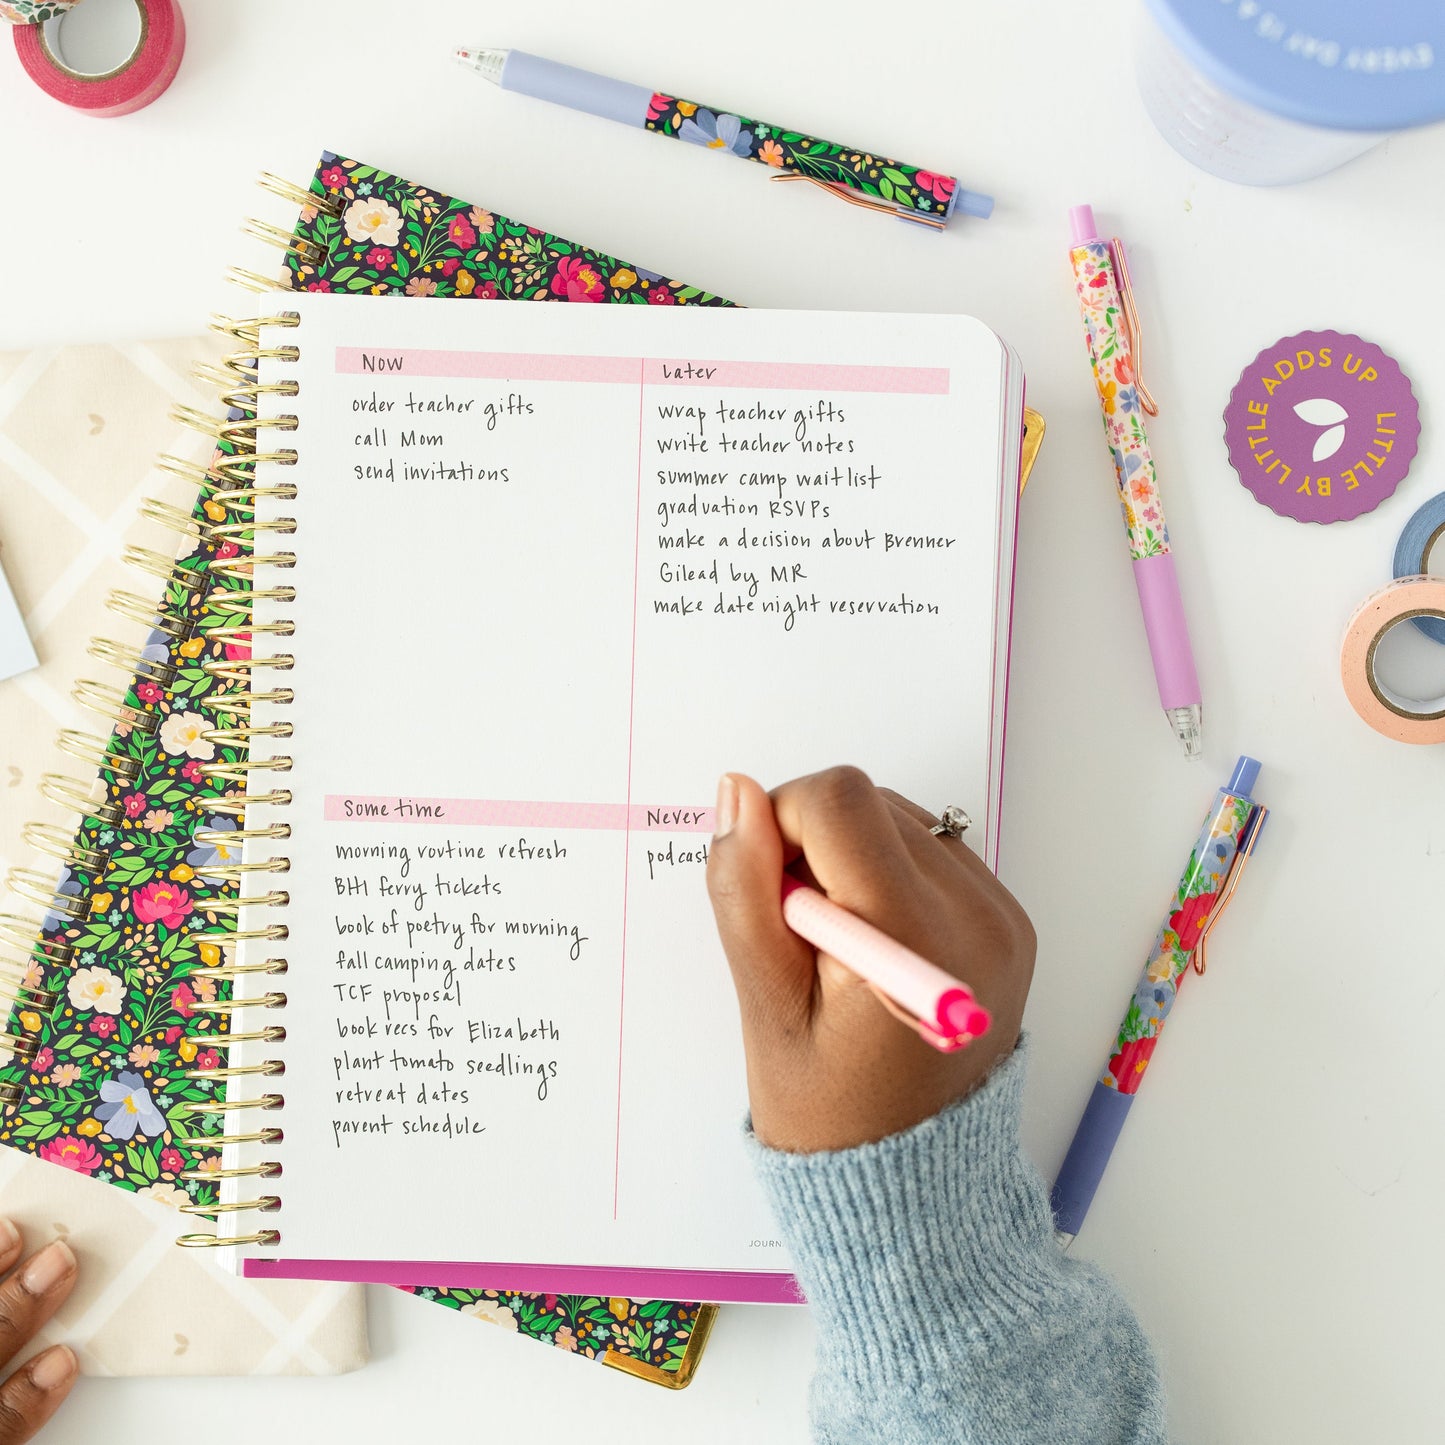 EVERY DAY IS A
LITTLE BY LITTLE ADDS UP
Now
order teacher gifts
call Mom
send invitations
Later
wrap teacher gifts
write teacher notes
summer camp waitlist
graduation RSVPs
make a decision about Brenner
Gilead by MR
make date night reservation
Sometime
morning routine refresh
BHI ferry tickets
book of poetry for morning
fall camping dates
TCF proposal
book recs for Elizabeth
plant tomato seedlings
retreat dates
parent schedule
Never
podcast
JOURN